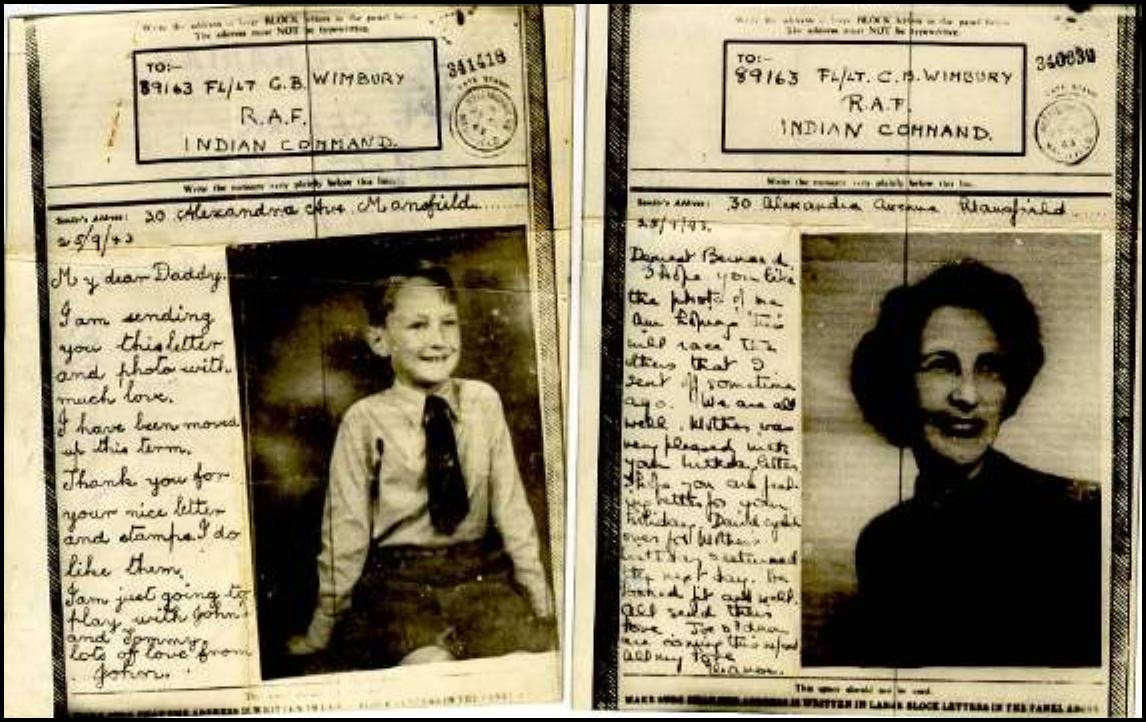 Write the address in large BLOCK letters in the panel below
The address must NOT be typewritten.
TO:-
89163 FL/LT C.B. WIMBURY
R.A.F.
INDIAN COMMAND.
341418
Write the message very plainly below this line.
Sender's Address: 30 Alexandra Ave. Mansfield
25/9/43
My dear Daddy.
I am sending
you this letter
and photo with
much love.
I have been moved
up this term.
Thank you for
your nice letter
and stamps. I do
like them.
I am just going to
play with John
and Tommy.
lots of love from
John.
MAKE SURE THAT THE ADDRESS IS WRITTEN IN LARGE BLOCK LETTERS IN THE PANEL
Write the address in large BLOCK letters in the panel below
The address must NOT be typewritten.
TO:-
89163 FL/LT. C.B. WIMBURY
R.A.F.
INDIAN COMMAND.
Write the message very plainly below this line.
Sender's Address: 30 Alexandra Avenue Mansfield
25/9/43.
Dearest Bernard
I hope you like
the photo of me
am hoping this
will race the
others that I
sent off sometime
ago. We are all
well. Mother was
very pleased with
your letter
I hope you are
better for your
holiday. David
over for Mother's
birthday & returned
the next day. He
looked fit and well.
All send their
love. Joe
are coming this
All my love
Eleanor.
This space should not be used.
MAKE SURE THAT THE ADDRESS IS WRITTEN IN LARGE BLOCK LETTERS IN THE PANEL ABOVE